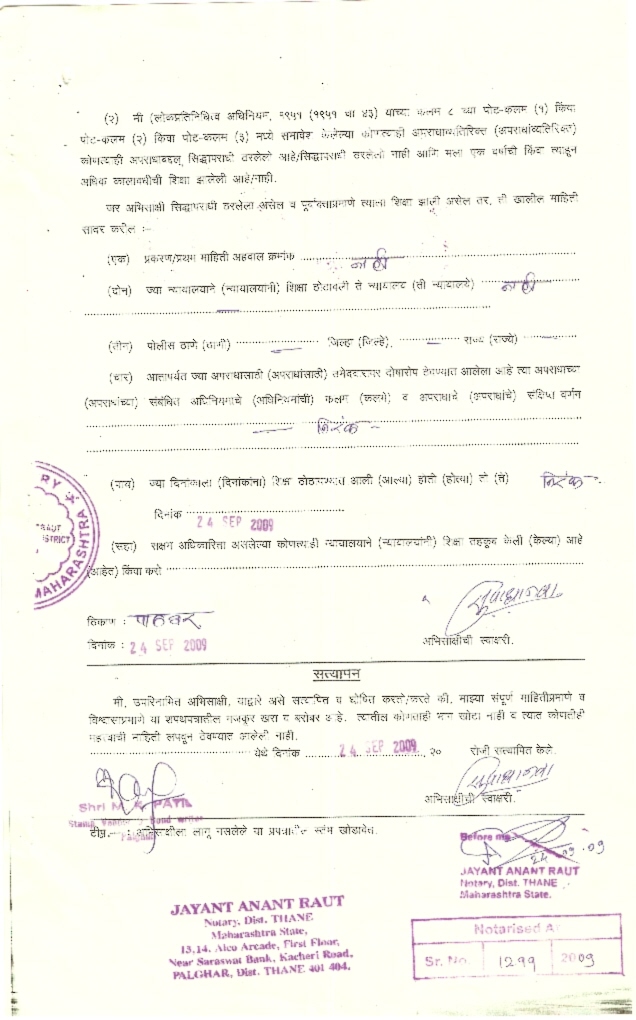 (२) मी (लोकप्रतिनिधित्व अधिनियम, १९५१ (१९५१ चा ४३) याच्या कलम ८ च्या पोट-कलम (१) किंवा
पोट-कलम (२) किंवा पोट-कलम (३) मध्ये समावेश केलेल्या कोणत्याही अपराधाव्यतिरिक्त (अपराधांव्यतिरिक्त)
कोणत्याही अपराधाबद्दल सिद्धापराधी ठरलेलो आहे/सिद्धापराधी ठरलेलो नाही आणि मला एक वर्षाची किंवा त्याहून
अधिक कालावधीची शिक्षा झालेली आहे/नाही.
जर अभिसाक्षी सिद्धापराधी ठरलेला असेल व पूर्वोक्ताप्रमाणे त्याला शिक्षा झाली असेल तर, तो खालील माहिती
सादर करील :-
(एक) प्रकरण/प्रथम माहिती अहवाल क्रमांक नाही
(दोन) ज्या न्यायालयाने (न्यायालयांनी) शिक्षा ठोठावली ते न्यायालय (ती न्यायालये) नाही
(तीन) पोलीस ठाणे (ठाणी) — जिल्हा (जिल्हे), — राज्य (राज्ये) —
(चार) आतापर्यंत ज्या अपराधासाठी (अपराधांसाठी) उमेदवारावर दोषारोप ठेवण्यात आलेला आहे त्या अपराधाच्या
(अपराधांच्या) संबंधित अधिनियमाचे (अधिनियमांची) कलम (कलमे) व अपराधाचे (अपराधांचे) संक्षिप्त वर्णन
— निरंक -
(पाच) ज्या दिनांकाला (दिनांकांना) शिक्षा ठोठावण्यात आली (आल्या) होती (होत्या) तो (ते) निरंक -
दिनांक 24 SEP 2009
(सहा) सक्षम अधिकारिता असलेल्या कोणत्याही न्यायालयाने (न्यायालयांनी) शिक्षा तहकूब केली (केल्या) आहे
(आहेत) किंवा कसे
RY
RAUT
DISTRICT
MAHARASHTRA
ठिकाण : पालघर
दिनांक : 24 SEP 2009
अभिसाक्षीची स्वाक्षरी.
सत्यापन
मी, उपरिनामित अभिसाक्षी, याद्वारे असे सत्यापित व घोषित करतो/करते की, माझ्या संपूर्ण माहितीप्रमाणे व
विश्वासाप्रमाणे या शपथपत्रातील मजकूर खरा व बरोबर आहे. त्यातील कोणताही भाग खोटा नाही व त्यात कोणतीही
महत्त्वाची माहिती लपवून ठेवण्यात आलेली नाही.
येथे दिनांक 24 SEP 2009, २० रोजी सत्यापित केले.
अभिसाक्षीची स्वाक्षरी.
Shri M. K. PATIL
Stamp Vendor Bond writer
Palghar
टीप.— अभिसाक्षीला लागू नसलेले या प्रपत्रातील स्तंभ खोडावेत.
Before me
24.09.09
JAYANT ANANT RAUT
Notary, Dist. THANE
Maharashtra State.
JAYANT ANANT RAUT
Notary, Dist. THANE
Maharashtra State,
13,14, Alco Arcade, First Floor,
Near Saraswat Bank, Kacheri Road,
PALGHAR, Dist. THANE 401 404.
Notarised At
Sr. No. 1299 2009